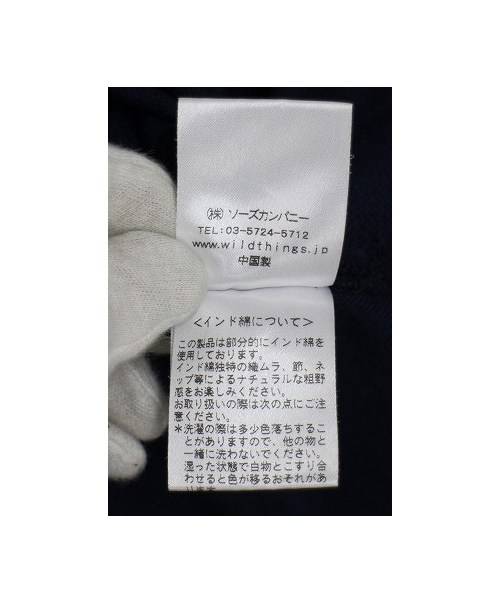 ㈱ソーズカンパニー
TEL:03-5724-5712
www.wildthings.jp
中国製
<インド綿について>
この製品は部分的にインド綿を
使用しております。
インド綿独特の織ムラ、節、ネ
ップ等によるナチュラルな粗野
感をお楽しみください。
お取り扱いの際は次の点にご注
意ください。
*洗濯の際は多少色落ちするこ
とがありますので、他の物と
一緒に洗わないでください。
湿った状態で白物とこすり合
わせると色が移るおそれがあ
ります。